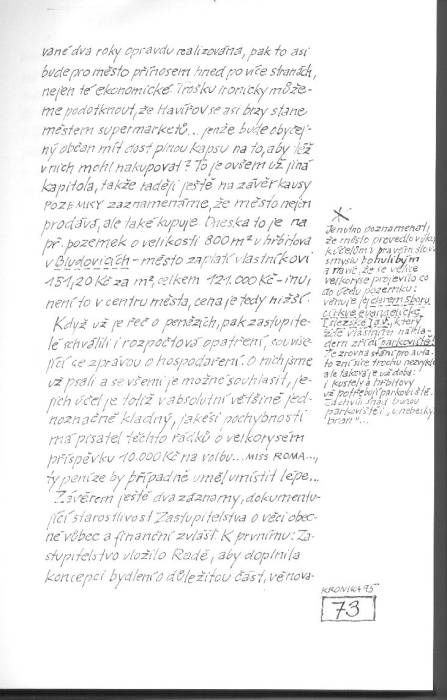 vané dva roky opravdu realizována, pak to asi
bude pro město přínosem hned po více stranách,
nejen té ekonomické. Trošku ironicky může-
me podotknout, že Havířov se asi brzy stane
městem supermarketů... jenže bude obyčej-
ný občan mít dost plnou kapsu na to, aby též
v nich mohl nakupovat? To je ovšem už jiná
kapitola, takže raději ještě na závěr kausy
POZEMKY zaznamenáme, že město nejen
prodává, ale také kupuje. Dneska to je na
př. pozemek o velikosti 800 m² u hřbitova
v Bludovicích - město zaplatí vlastníkovi
151,20 Kč za m², celkem 121.000 Kč - inu,
není to v centru města, cena je tedy nižší.
Když už je řeč o penězích, pak zastupite-
lé schválili i rozpočtová opatření, souvise-
jící se zprávou o hospodaření. O nich jsme
už psali a se všemi je možné souhlasit, je-
jich účel je totiž v absolutní většině jed-
noznačně kladný, jakési pochybnosti
má pisatel těchto řádků o velkorysém
příspěvku 10.000 Kč na volbu... MISS ROMA...,
ty peníze by případně uměl umístit lépe...
Závěrem ještě dva záznamy, dokumentu-
jící starostlivost Zastupitelstva o věci obec-
né vůbec a finanční zvlášť. K prvnímu: Za-
stupitelstvo uložilo Radě, aby doplnila
koncepci bydlení o důležitou část, věnova-
Je nutno poznamenat,
že město provedlo výkup
k účelům v pravém slova
smyslu bohulibým
a navíc, že se velice
velkoryse projevilo co
do účelu pozemku:
věnuje jej darem sboru
církve evangelické
Slezské a.v., který
zde vlastním nákla-
dem zřídí parkoviště!
že zrovna stání pro auta-
to zní sice trochu nezvykle
ale taková je už doba:
i kostely a hřbitovy
už potřebují parkoviště.
Za chvíli snad budou
parkoviště i "u nebeských
bran"...
KRONIKA 95
73